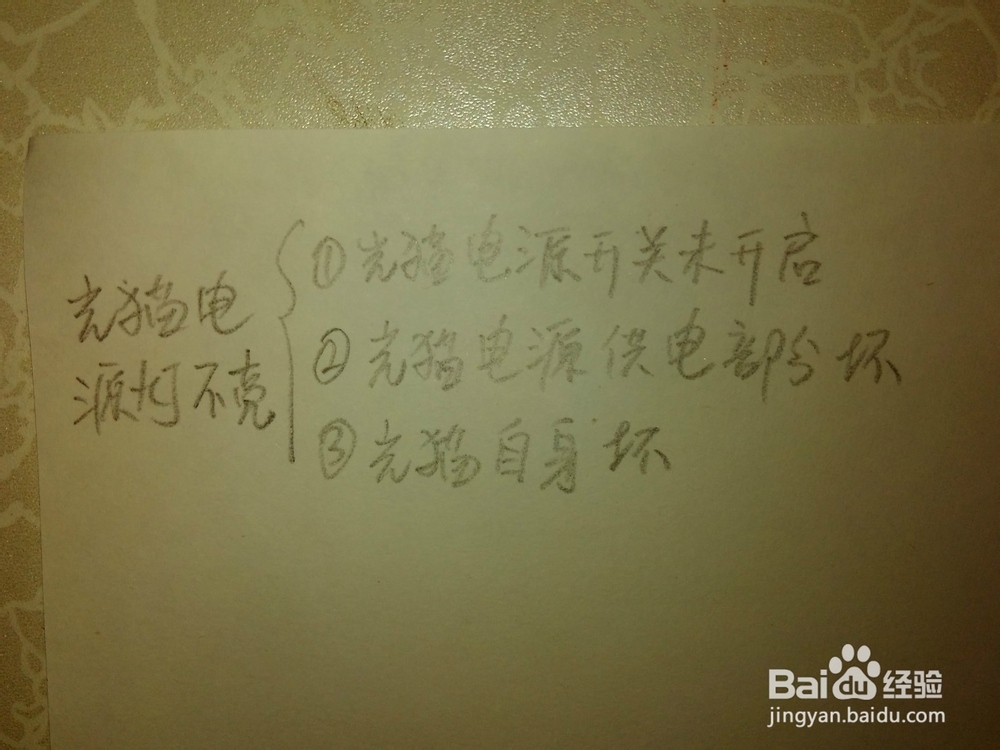 光猫电
源灯不亮
①光猫电源开关未开启
②光猫电源供电部分坏
③光猫自身坏
Baidu经验
jingyan.baidu.com